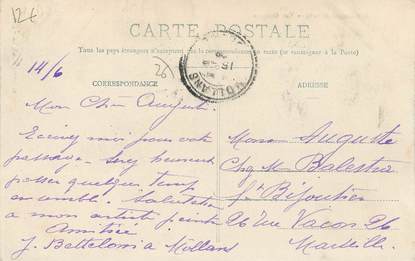 12f
CARTE POSTALE
Tous les pays étrangers n'acceptent pas la correspondance au recto (se renseigner à la Poste)
14/6
26
MOLLANS
15
CORRESPONDANCE
ADRESSE
Mon Cher Auguste
Ecrivez moi pour votre
passage. Serez heureux
passer quelques temps
ensemble. Salutation
a mon artiste peintre
Amitiés
J. Betteloni a Mollans
Mons Auguste
Chez M Balestra
Bijoutier
26 Rue Vacon 26
Marseille